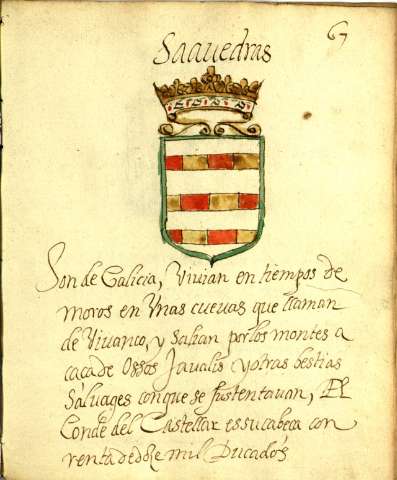 67
Saauedras
Son de Galicia, Viuian en tiempos de
moros en Vnas cueuas que llaman
de Viuanco, y salian por los montes a
caça de Ossos Jaualis y otras bestias
Sáluages con que se sustentauan, El
Conde del Castellar es su cabeca con
renta de doze mil Ducados